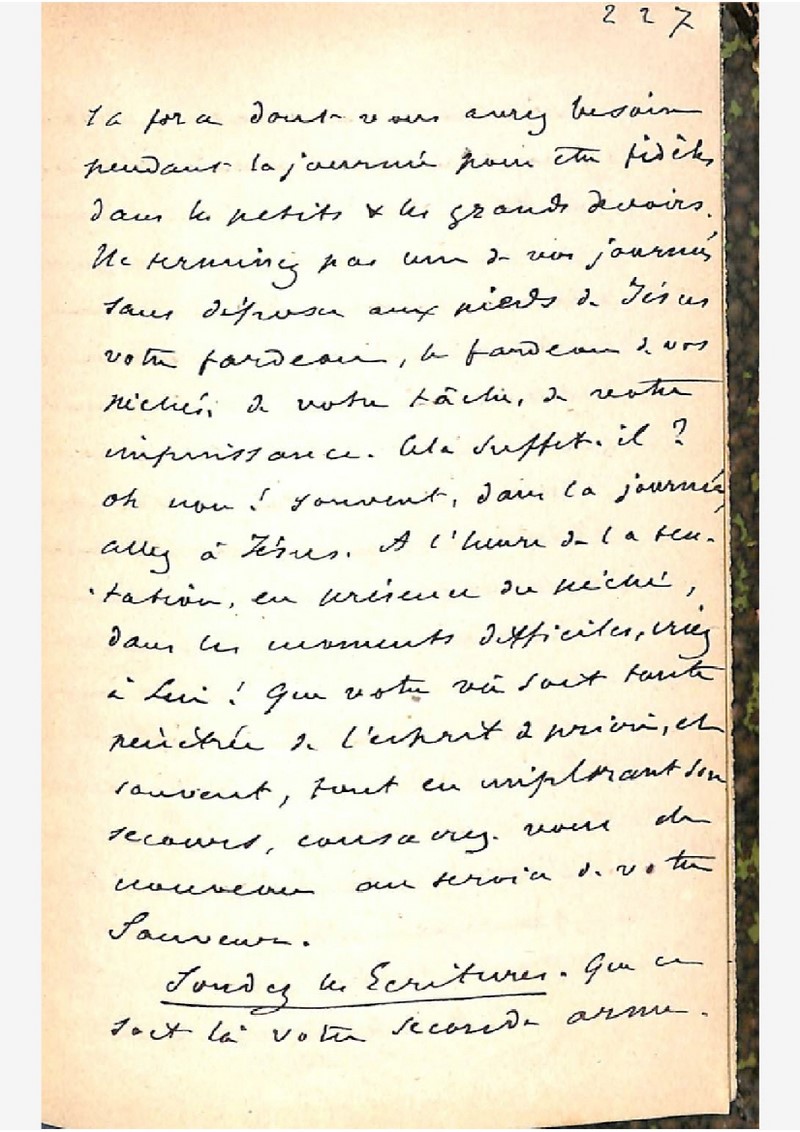 227
la force dont vous aurez besoin
pendant la journée pour être fidèles
dans les petits & les grands devoirs.
Ne terminez pas une de vos journées
sans déposer aux pieds de Jésus
votre fardeau, le fardeau de vos
péchés, de votre tâche, de votre
impuissance. Cela suffit-il ?
oh non ! souvent, dans la journée,
allez à Jésus. A l'heure de la ten-
tation, en présence du péché,
dans les moments difficiles, criez
à Lui ! Que votre vie soit toute
pénétrée de l'esprit de prière, et
souvent, tout en implorant son
secours, consacrez-vous de
nouveau au service de votre
Sauveur.
Sondez les Ecritures. Que ce
soit là votre seconde arme.